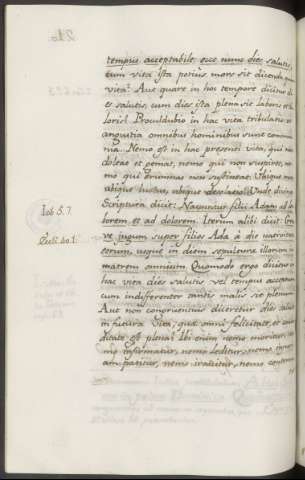 210
tempus acceptabile ecce nunc dies salutis,
tum vita ista potius mors sit dicenda quam
vita? Aut quare in hoc tempore dicitur di
es salutis, cum dies ista plena sit laboris et do
loris? Proculdubio in hac vita tribulatio et
angustia omnibus hominibus sunt commu
nia. Nemo est in hac presenti vita, qui non
doleat et gemat, nemo qui non suspiret, ne
mo qui ærumnas non sustineat. Ubique
ubique luctus, ubique desolatio. Unde divina
Scriptura dicit: Nascuntur filii Adam ad la
Iob 5. 7.
borem et ad dolorem. Iterum alibi dicit: Gra
Eccli. 40. 1.
ve jugum super filios Ada à die nativitatis
eorum, usque in diem sepulturæ illorum in
matrem omnium. Quomodo ergo dicitur in
hac vita dies salutis vel tempus accepta
cum indifferenter tantis malis sit plenum
Aut non congruentius diceretur dies salutis
in futura vita, quæ omni felicitate, et
est plena? Ibi enim nemo moritur,
infirmatur, nemo læditur, nemo
patitur, nemo irascitur, nemo